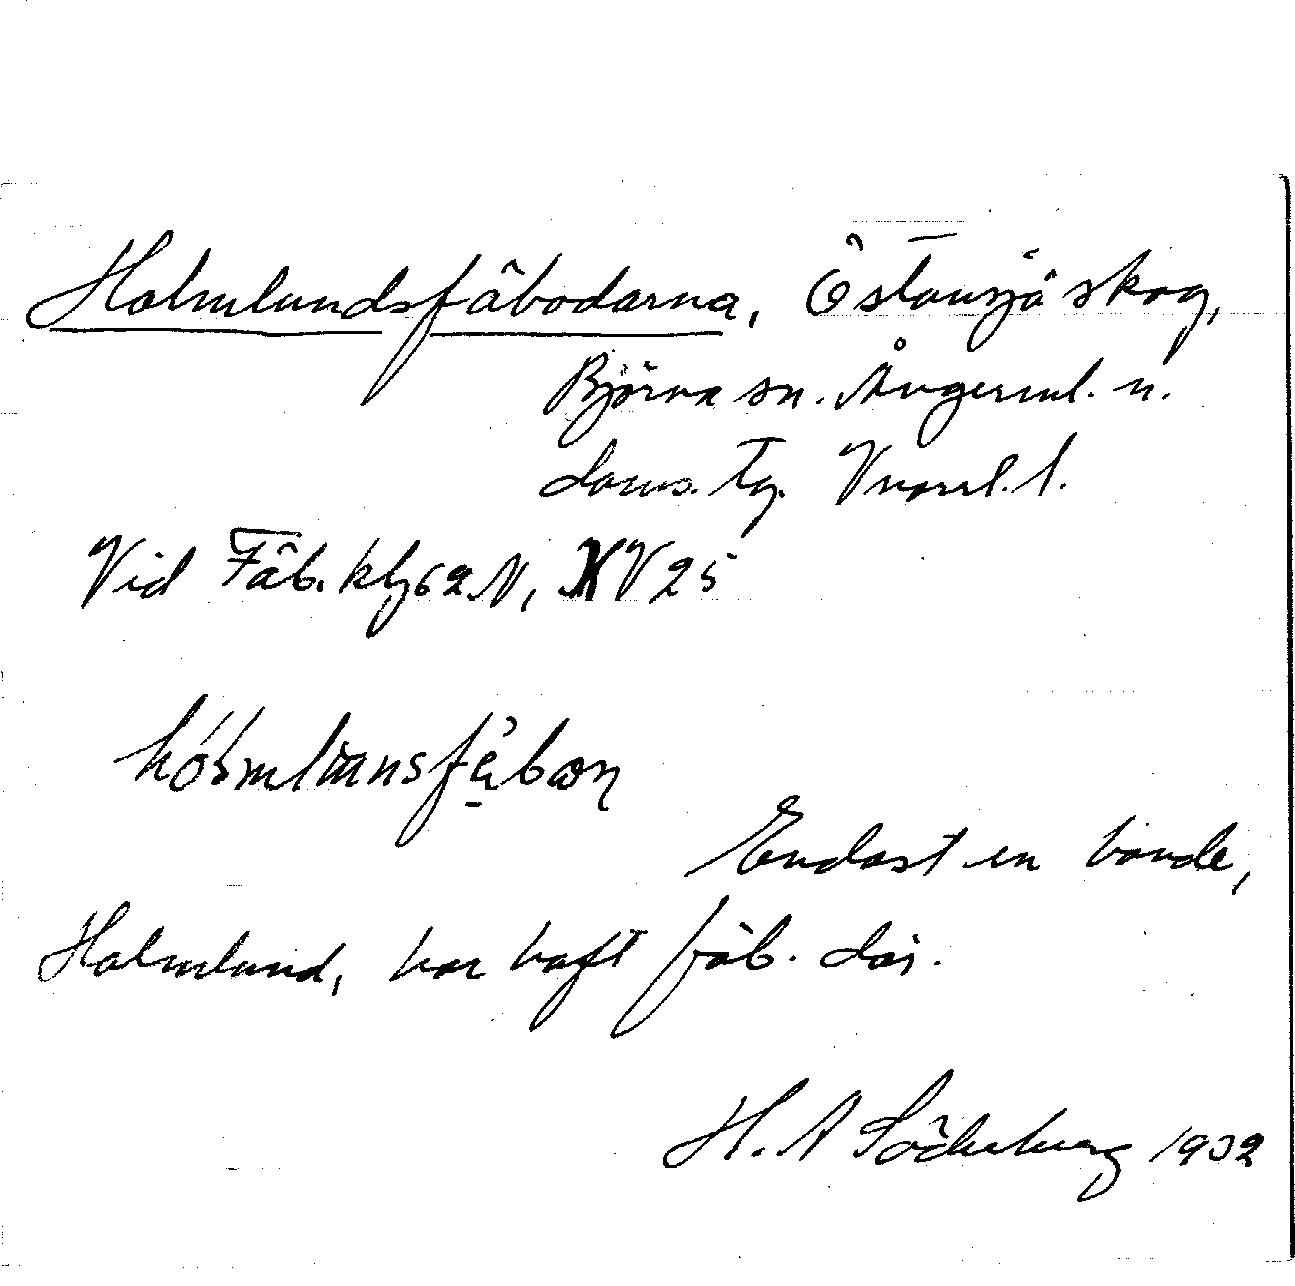 Holmlundsfäbodarna, Östansjö skog,
Björna sn. Ångerml. n.
doms. tg. Vnorrl. l.
Vid Fäb. klg 62 N, XV 25
Endast en bonde,
Holmlund, har haft fäb. där.
H. A Söderberg 1932